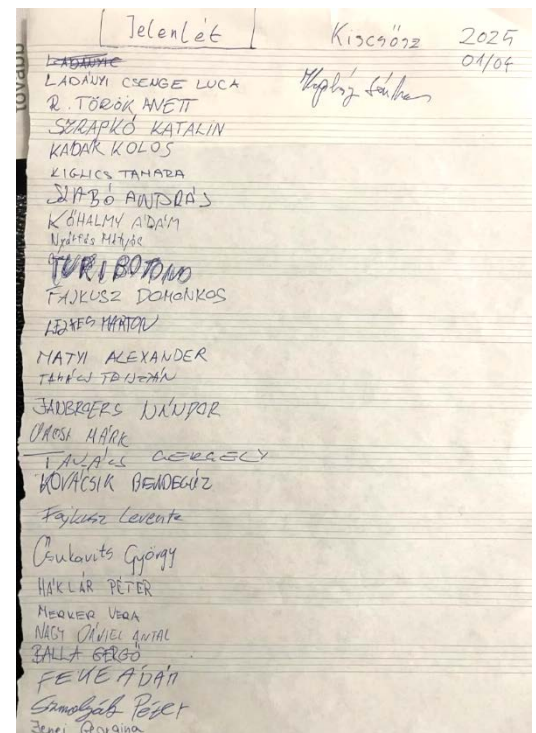 Jelenlét Kiscsősz 2025
01/04
LADÁNYI CSENGE LUCA
R. TÖRÖK ANETT
SZRAPKÓ KATALIN
KÁDÁR KOLOS
KIGLICS TAMARA
SZABÓ ANDRÁS
KŐHALMY ÁDÁM
Nyáttás Mátyás
TURI BOTOND
FAJKUSZ DOMONKOS
MÁRTON
MATYI ALEXANDER
TAKÁCS TRISZTÁN
NÁNDOR
MÁRK
TAKÁCS GERGELY
KOVÁCSIK BENDEGÚZ
Fajkusz Levente
Csukovits György
HAKLÁR PÉTER
MERKER VERA
NAGY DÁNIEL ANTAL
BALLA GERGŐ
FEKE ÁDÁM
Péter
Georgina